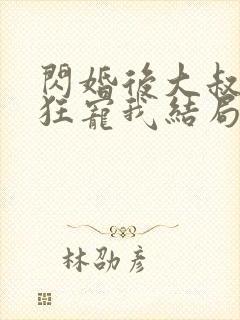 閃婚後大叔
狂寵我結局
林劭彦